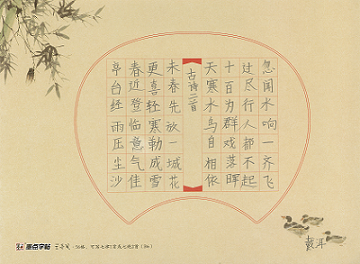 亭台经雨压尘沙
春近登临意气佳
更喜轻寒勒成雪
未春先放一城花
古诗二首
天寒水鸟自相依
十百为群戏落晖
过尽行人都不起
忽闻水响一齐飞
墨点字帖